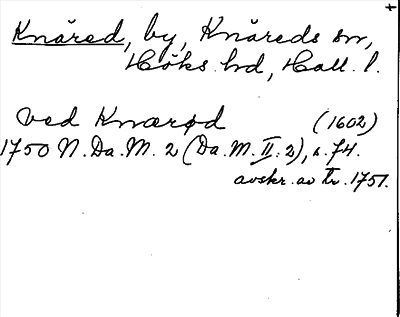 Knäred, by, Knäreds sn,
Höks hd, Hall. l.
ved Knærød (1602)
1750 N. Da. M. 2 (Da. M. II: 2), s. 74.
avskr. av tr. 1751.